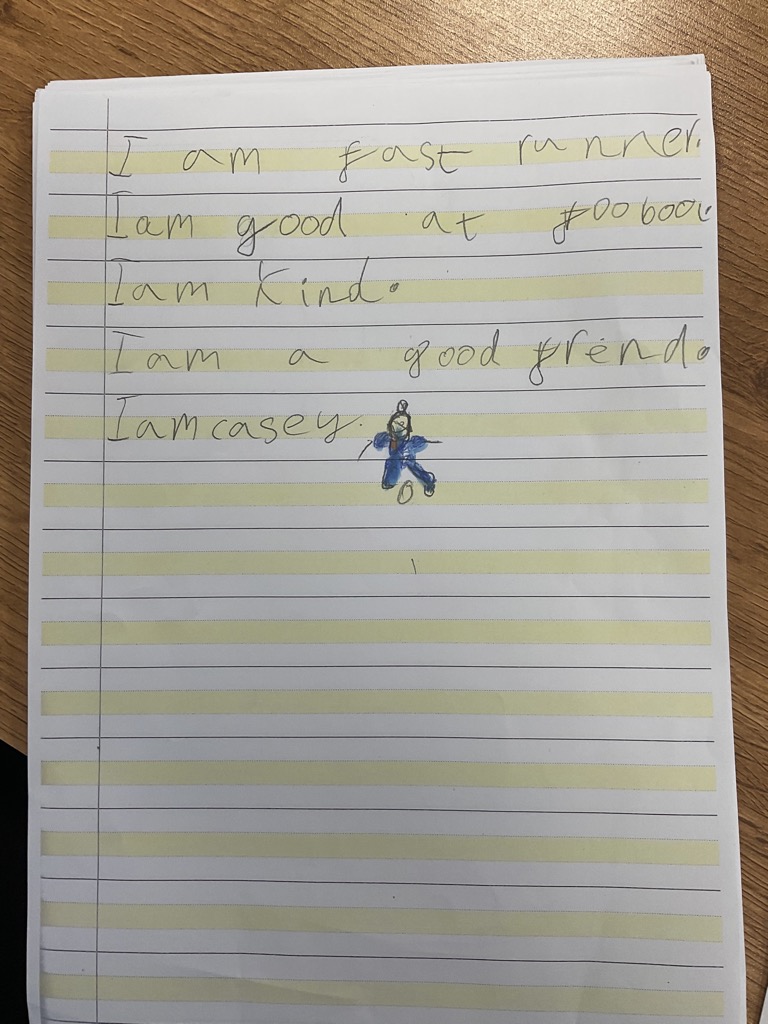 I am fast runner.
I am good at foobool.
I am Kind.
I am a good frend.
I am casey.